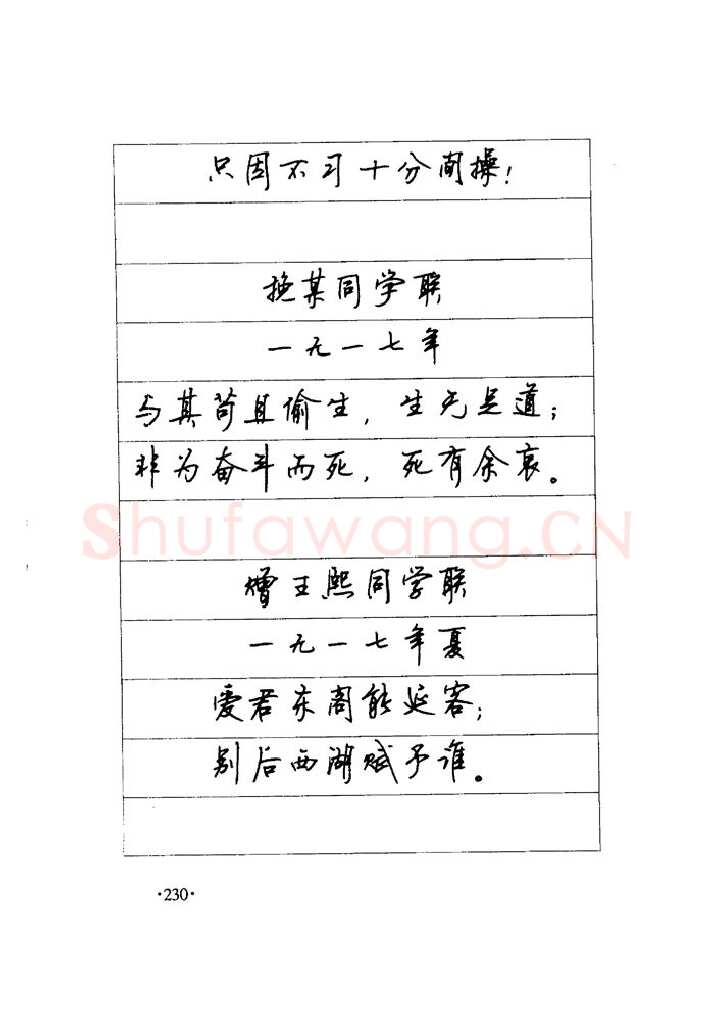 只因不习十分间操!
挽某同学联
一九一七年
与其苟且偷生,生无足道;
非为奋斗而死,死有余哀。
Shufawang.CN
赠王熙同学联
一九一七年夏
爱君东阁能延客;
别后西湖赋予谁。
·230·